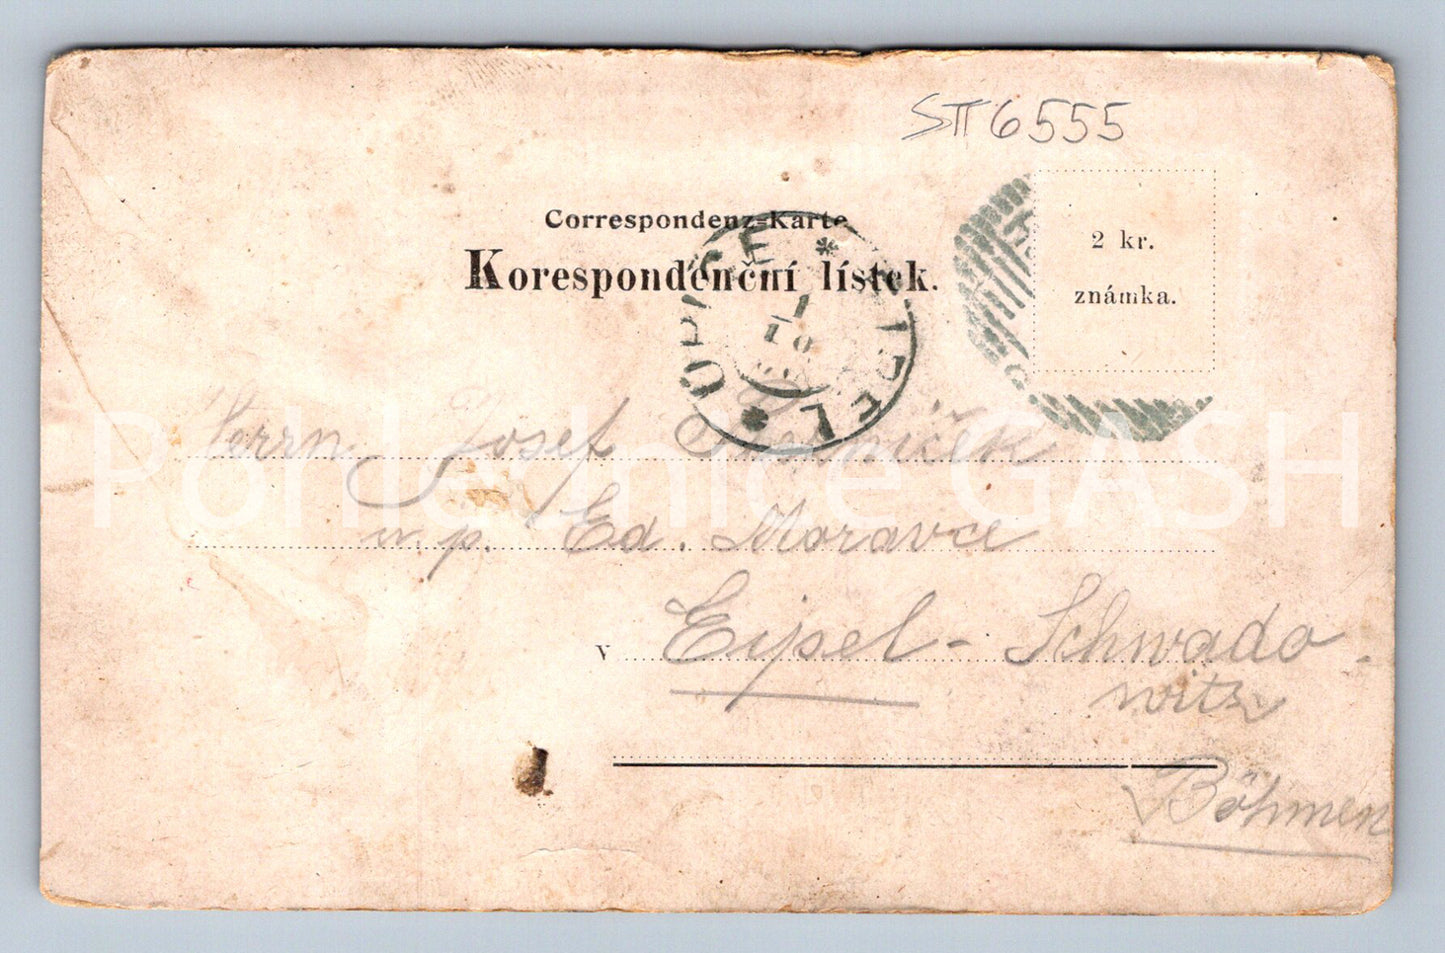 STT6555
Correspondenz-Karte
Korespondenční lístek.
2 kr.
známka.
ÚPICE * EIPEL *
1
10
Herrn Josef
n. p. Ed. Moravce
v Eipel - Schwado
witz
Böhmen
Pohlednice GASH